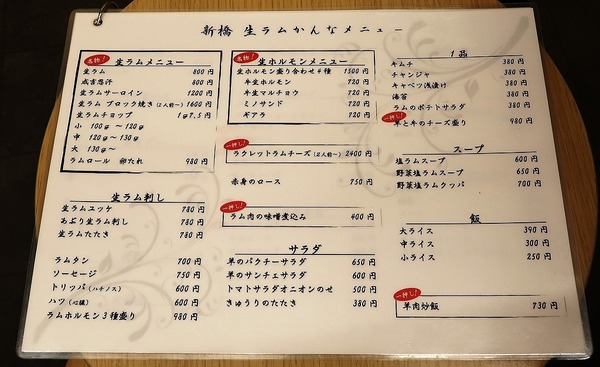 新橋 生ラムかんなメニュー
名物!
生ラムメニュー
生ラム 800円
成吉思汗 800円
生ラムサーロイン 1200円
生ラム ブロック焼き(2人前〜) 1600円
生ラムチョップ 1g7.5円
小 100g 〜120g
中 120g〜130g
大 130g〜
ラムロール 卵たれ 980円
生ラム刺し
生ラムユッケ 780円
あぶり生ラム刺し 780円
生ラムたたき 780円
ラムタン 700円
ソーセージ 750円
トリッパ(ハチノス) 600円
ハツ(心臓) 600円
ラムホルモン3種盛り 980円
名物!
生ホルモンメニュー
生ホルモン盛り合わせ4種 1500円
牛生ホルモン 720円
牛生マルチョウ 720円
ミノサンド 720円
ギアラ 720円
一押し!
ラクレットラムチーズ(2人前〜) 2400円
赤身のロース 750円
一押し!
ラム肉の味噌煮込み 400円
サラダ
羊のパクチーサラダ 650円
羊のサンチェサラダ 600円
トマトサラダオニオンのせ 500円
きゅうりのたたき 380円
1品
キムチ 380円
チャンジャ 380円
キャベツ浅漬け 380円
海苔 380円
ラムのポテトサラダ 380円
一押し!
羊と牛のチーズ盛り 980円
スープ
塩ラムスープ 600円
野菜塩ラムスープ 650円
野菜塩ラムクッパ 700円
飯
大ライス 390円
中ライス 300円
小ライス 250円
一押し!
羊肉炒飯 730円